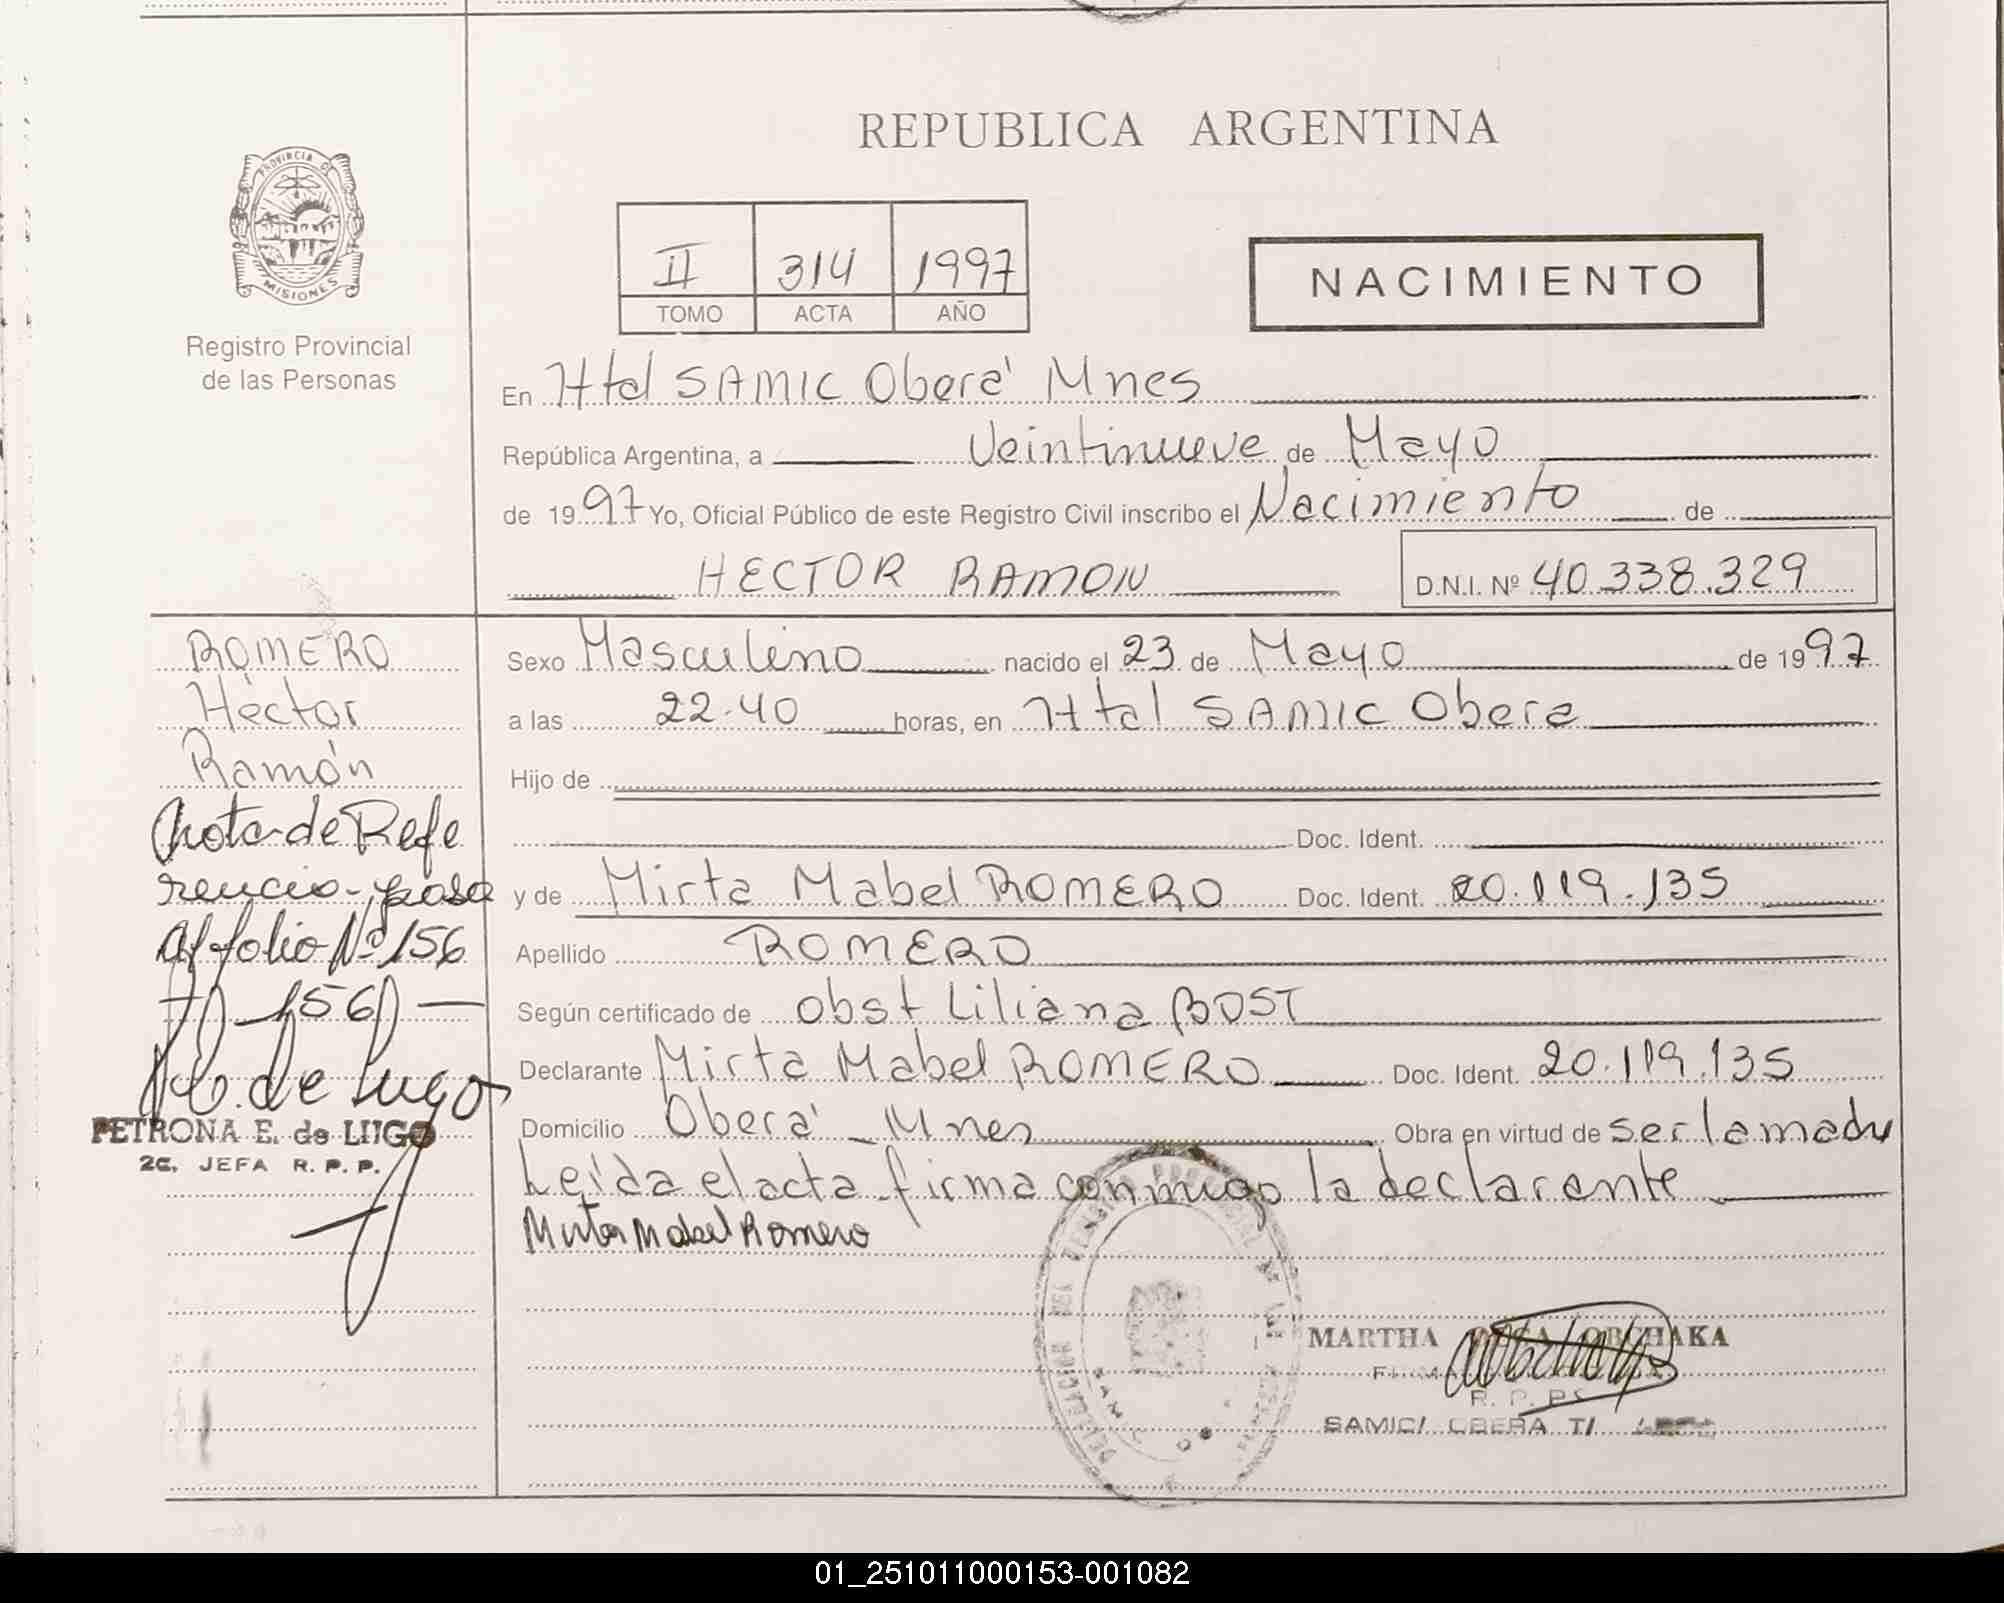 REPUBLICA ARGENTINA
PROVINCIA DE
MISIONES
Registro Provincial
de las Personas
II 314 1997
TOMO ACTA AÑO
NACIMIENTO
En Htal SAMIC Oberá Mnes
República Argentina, a Veintinueve de Mayo
de 1997 Yo, Oficial Público de este Registro Civil inscribo el Nacimiento de
HECTOR RAMON D.N.I. Nº 40.338.329
ROMERO
Héctor
Ramón
Nota de Refe
rencia- pasa
al folio Nº 156
156
P. de Lugo
PETRONA E. de LUGO
2ª. JEFA R. P. P.
Sexo Masculino nacido el 23 de Mayo de 1997
a las 22.40 horas, en Htal SAMIC Obera
Hijo de
Doc. Ident.
y de Mirta Mabel ROMERO Doc. Ident. 20.119.135
Apellido ROMERO
Según certificado de Obst Liliana BOST
Declarante Mirta Mabel ROMERO Doc. Ident. 20.119.135
Domicilio Oberá - Mnes Obra en virtud de ser la madre
Leída el acta firma conmigo la declarante
Mirta Mabel Romero
MARTHA
R. P. PS
SAMIC/ OBERA
01_251011000153-001082